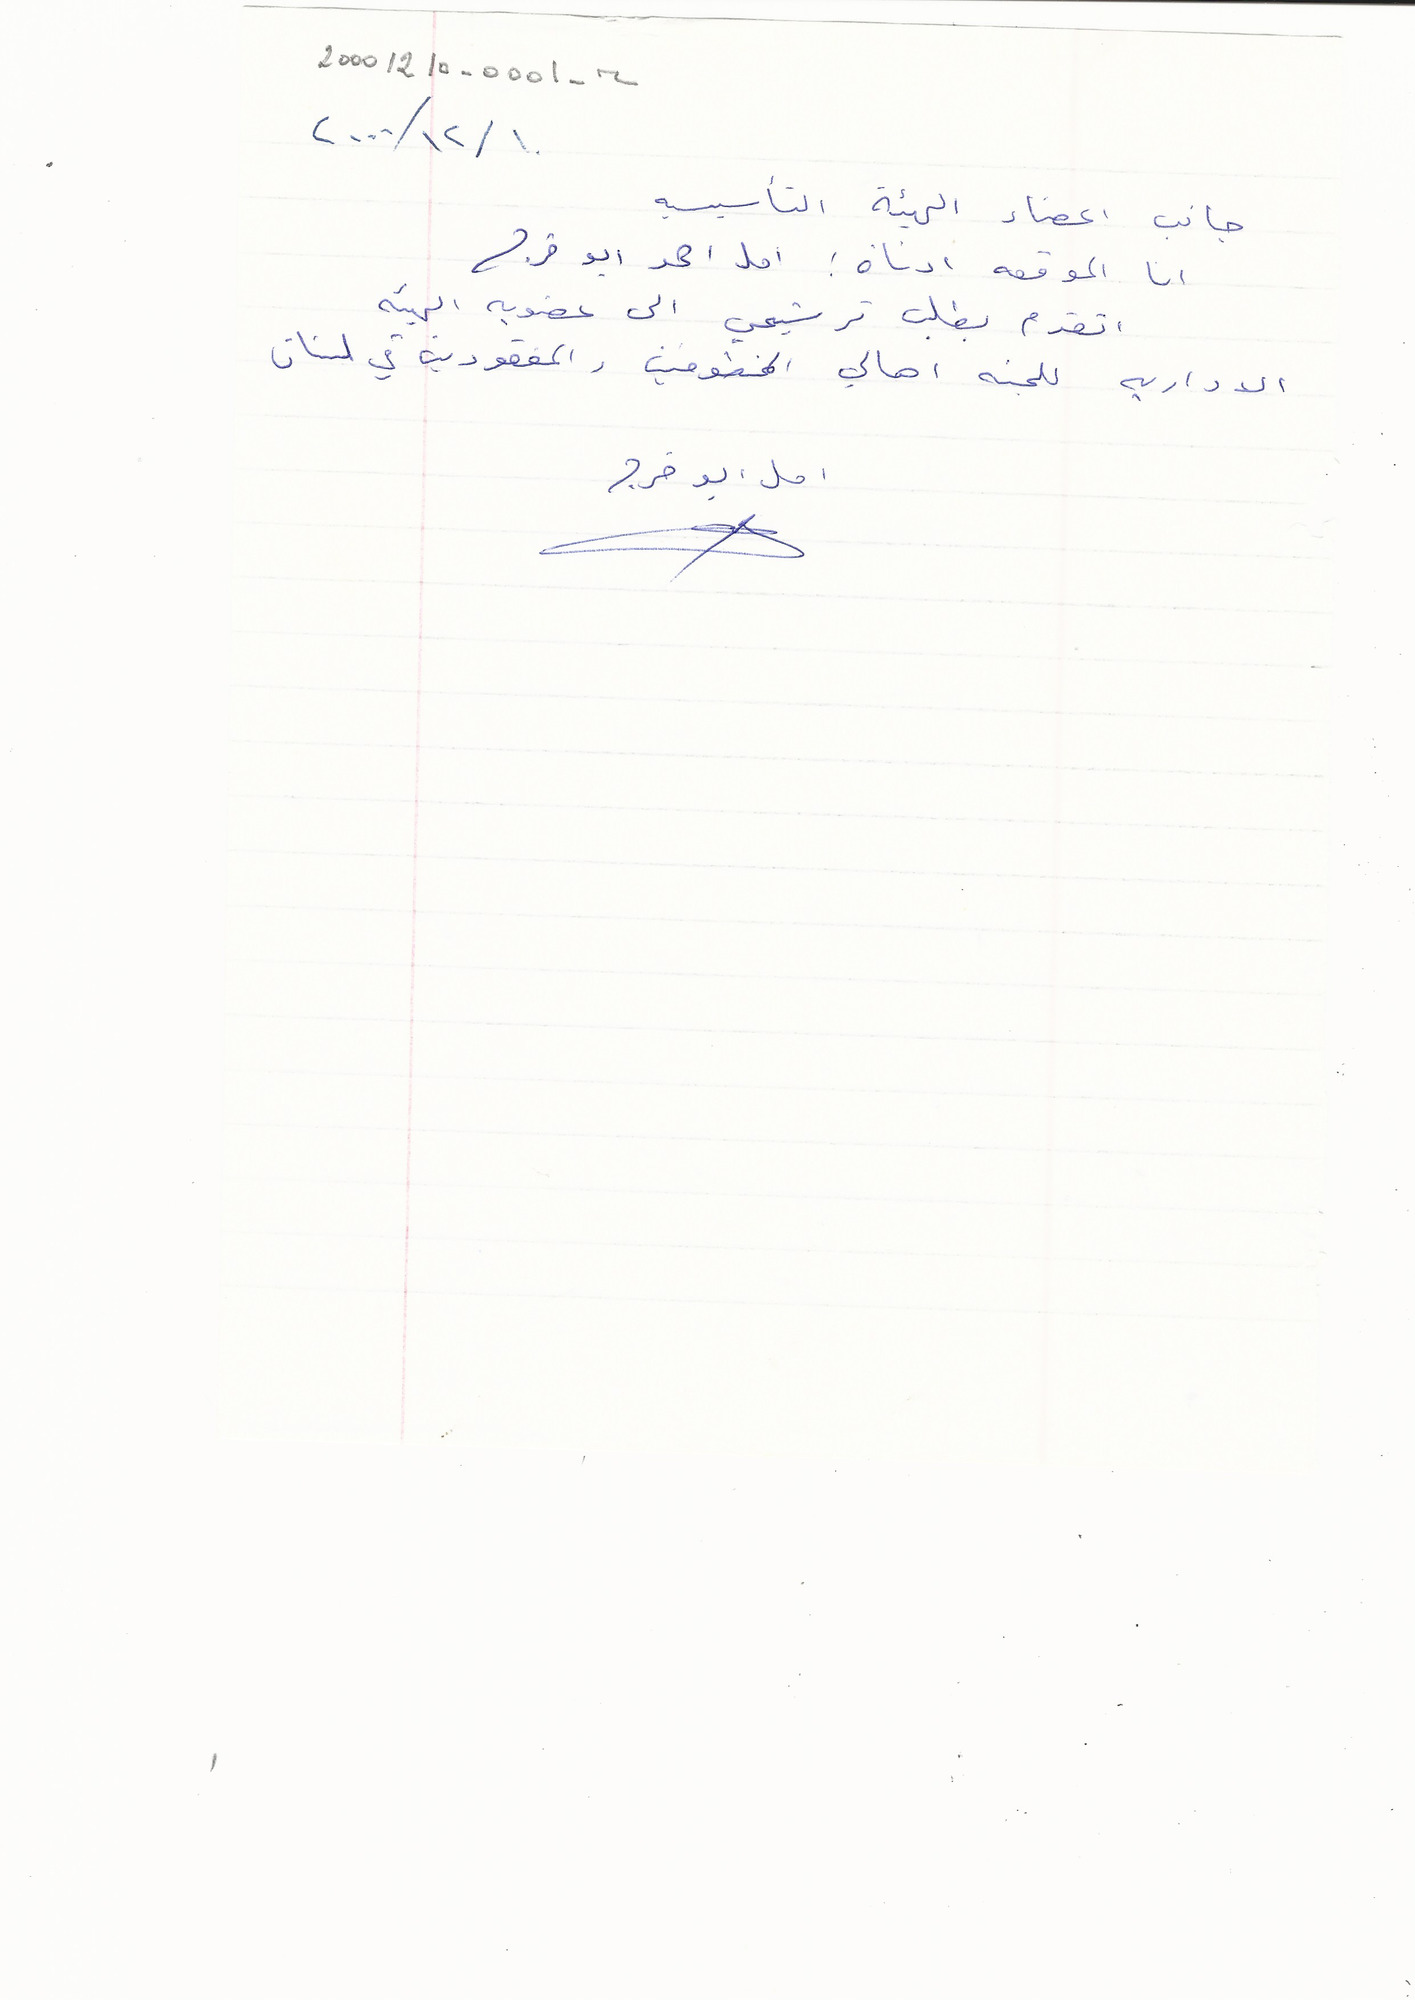 20001210-0001-
٢٠٠٠/١٢/١٠
جانب اعضاء الهيئة التأسيسيه
انا الموقعه ادناه : امل احمد ابو فرج
اتقدم بطلب ترشيحي الى عضويه الهيئه
الاداريه للجنه اهالي المخطوفين والمفقودين في لبنان
امل ابو فرج